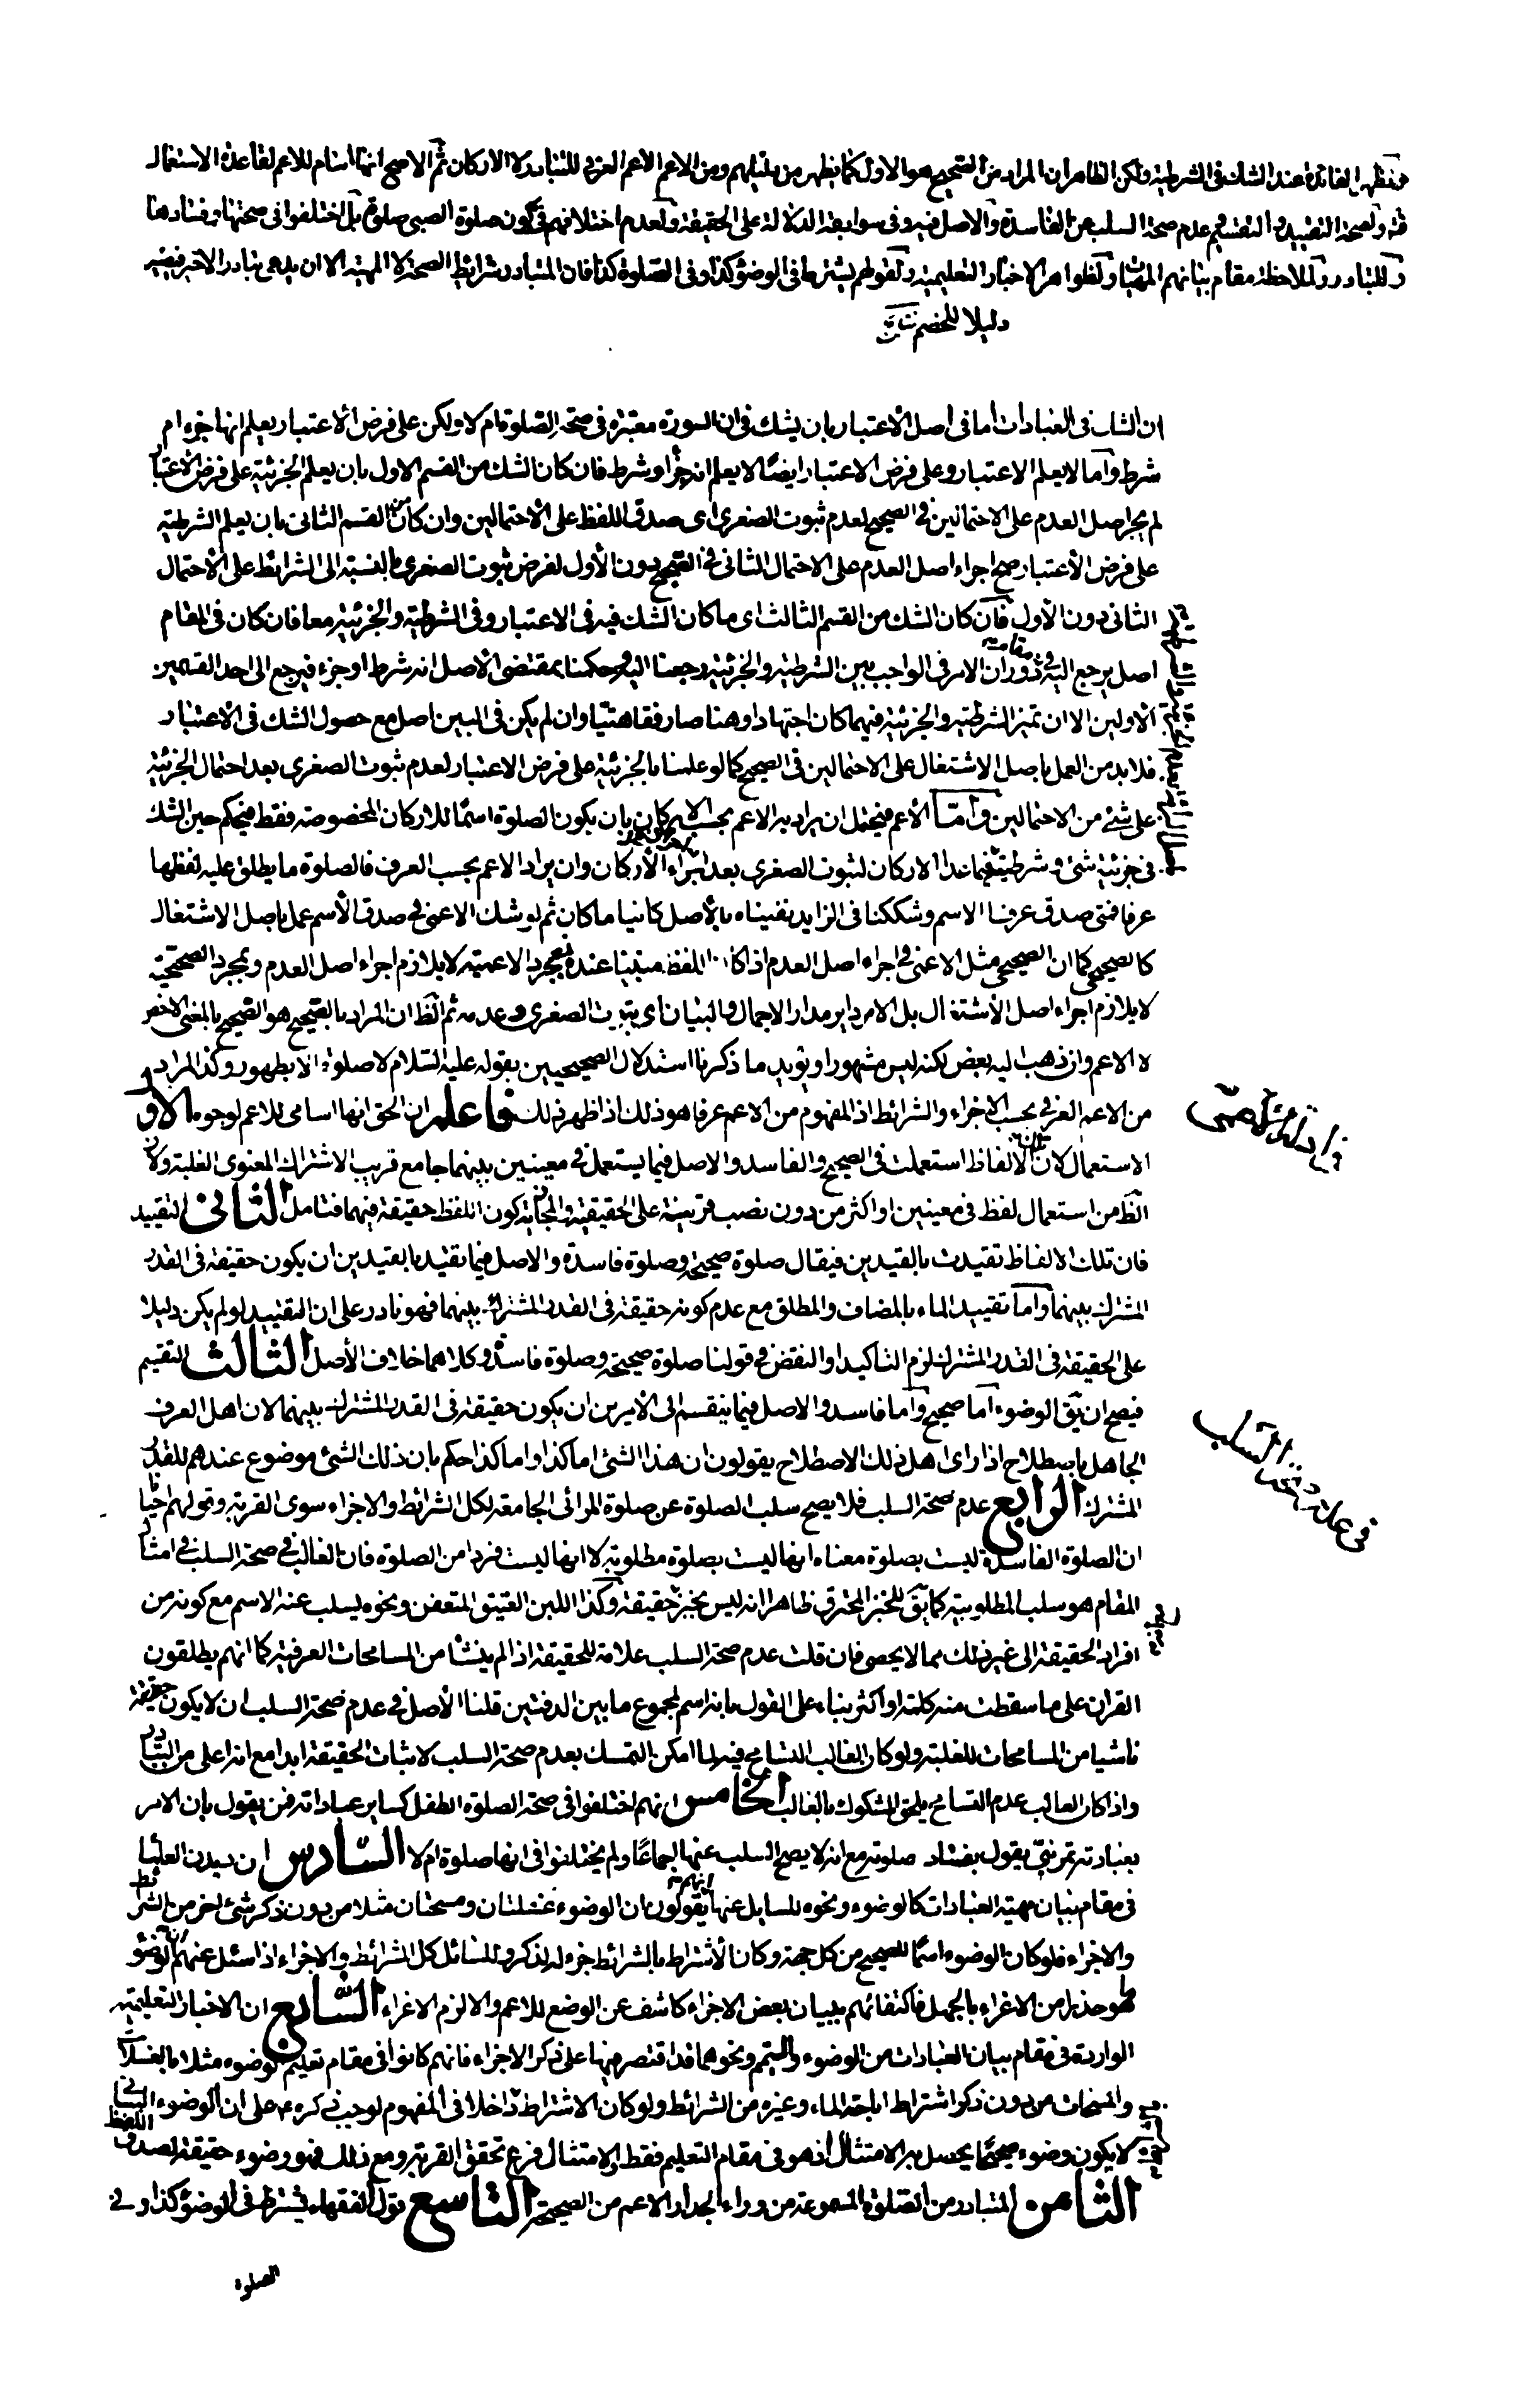 فتظهر الفائدة عند الشك فى الشرطية ولكن الظاهر ان المراد من الصحيح هو الاول كما يظهر من دليلهم ومن الاعم الاعم العرفى للتبادر لا الاركان ثم الاصح انها اسام للاعم لقاعدة الاستعمال
ولصحة التقييد والتقسيم عدم صحة السلب عن الفاسدة والاصل فيه وفى سوابقه الدلالة على الحقيقة ولعدم اختلافهم فى كون صلوة الصبى صلوة بل اختلفوا فى صحتها وفسادها
وللتبادر ولملاحظة مقام بيانهم المهيات ولظواهر الاخبار التعليمية ولقولهم يشترط فى الوضوء كذا وفى الصلوة كذا فان المتبادر شرائط الصحة لا المهية الا ان يدعى تبادر الاخير فيصير
دليلا للخصم
ان الشك فى العبادات اما فى اصل الاعتبار بان يشك فى ان السورة معتبرة فى صحة الصلوة ام لا ولكن على فرض الاعتبار يعلم انها جزء ام
شرط واما لا يعلم الاعتبار وعلى فرض الاعتبار ايضا لا يعلم انه جزء او شرط فان كان الشك من القسم الاول بان يعلم الجزئية على فرض الاعتبار
لم يجر اصل العدم على الاحتمالين فى الصحيح لعدم ثبوت الصغرى اى صدق اللفظ على الاحتمالين وان كان من القسم الثانى بان يعلم الشرطية
على فرض الاعتبار صح اجراء اصل العدم على الاحتمال الثانى فى الصحيح دون الاول لفرض ثبوت الصغرى بالنسبة الى الشرائط على الاحتمال
الثانى دون الاول فان كان الشك من القسم الثالث اى ما كان الشك فيه فى الاعتبار وفى الشرطية والجزئية معا فان كان فى المقام
اصل يرجع اليه فى دوران الامر فى الواجب بين الشرطية والجزئية رجعنا اليه وحكمنا بمقتضى الاصل انه شرط او جزء فيرجع الى احد القسمين
الاولين الا ان تميز الشرطية والجزئية فيهما كان اجتهادا وهنا صار فقاهتيا وان لم يكن فى البين اصل مع حصول الشك فى الاعتبار
فلا بد من العمل باصل الاشتغال على الاحتمالين فى الصحيح كما لو علمنا بالجزئية على فرض الاعتبار لعدم ثبوت الصغرى بعد احتمال الجزئية
على شئ من الاحتمالين واما الاعم فيحتمل ان يراد به الاعم بحسب الاركان بان يكون الصلوة اسما للاركان المخصوصة فقط فيحكم حين الشك
فى جزئية شئ وشرطيته فيما عدا الاركان لثبوت الصغرى بعد اجزاء الاركان وان يراد الاعم بحسب العرف فالصلوة ما يطلق عليه لفظها
عرفا فمتى صدق عرفا الاسم وشككنا فى الزايد نفيناه بالاصل كائنا ما كان ثم لو شك الاعمى فى صدق الاسم عمل باصل الاشتغال
كالصحيحى كما ان الصحيحى مثل الاعمى فى اجراء اصل العدم اذا كان اللفظ مبينا عنده فمجرد الاعمية لا يلازم اجراء اصل العدم وبمجرد الصحيحية
لا يلازم اجراء اصل الاشتغال بل الامر داير مدار الاجمال والبيان اى ثبوت الصغرى وعدمه ثم الظ ان المراد بالصحيح هو الصحيح بالمعنى الاخص
لا الاعم وان ذهب اليه بعض لكنه ليس مشهورا ويؤيد ما ذكرنا استدلال الصحيحيين بقوله عليه السلام لا صلوة الا بطهور وكذا المراد
من الاعم العرفى بحسب الاجزاء والشرائط اذ المفهوم من الاعم عرفا هو ذلك اذا ظهر ذلك فاعلم ان الحق انها اسامى للاعم لوجوه الاول
الاستعمال لان تلك الالفاظ استعملت فى الصحيح والفاسد والاصل فيما يستعمل فى معنيين بينهما جامع قريب الاشتراك المعنوى الغلبة ولان
الظ من استعمال لفظ فى معنيين او اكثر من دون نصب قرينة على الحقيقية والمجازية كون اللفظ حقيقة فيهما فتامل الثانى التقييد
فان تلك الالفاظ تقيدت بالقيدين فيقال صلوة صحيحة وصلوة فاسدة والاصل فيما تقيد بالقيدين ان يكون حقيقة فى القدر
المشترك بينهما واما تقييد الماء بالمضاف والمطلق مع عدم كونه حقيقة فى القدر المشترك بينهما فهو نادر على ان التقييد لو لم يكن دليلا
على الحقيقة فى القدر المشترك لزم التاكيد او النقض فى قولنا صلوة صحيحة وصلوة فاسدة وكلاهما خلاف الاصل الثالث التقسيم
فيصح ان يق الوضوء اما صحيح واما فاسد والاصل فيما ينقسم الى الامرين ان يكون حقيقة فى القدر المشترك بينهما لان اهل العرف
الجاهل باصطلاح اذا راى اهل ذلك الاصطلاح يقولون ان هذا الشئ اما كذا واما كذا حكم بان ذلك الشئ موضوع عندهم للقدر
المشترك الرابع عدم صحة السلب فلا يصح سلب الصلوة عن صلوة المرائى الجامعة لكل الشرائط والاجزاء سوى القربة وقولهم احيانا
ان الصلوة الفاسدة ليست بصلوة معناه انها ليست بصلوة مطلوبة لا انها ليست فردا من الصلوة فان الغالب فى صحة السلب فى امثال
المقام هو سلب المطلوبية كما يق للخبز المحترق ظاهرا انه ليس بخبز حقيقة وكذا اللبن العتيق المتعفن ونحوه يسلب عنه الاسم مع كونه من
افراد الحقيقة الى غير ذلك مما لا يحصى فان قلت عدم صحة السلب علامة للحقيقة اذا لم ينشا من المسامحات العرفية كما انهم يطلقون
القران على ما سقطت منه كلمة او اكثر بناء على القول بانه اسم لمجموع ما بين الدفتين قلنا الاصل فى عدم صحة السلب ان لا يكون حقيقة
ناشيا من المسامحات للغلبة ولو كان الغالب التسامح فيه لما امكن التمسك بعدم صحة السلب لاثبات الحقيقة ابدا مع انه اعلى من التبادر
واذا كان الغالب عدم التسامح يلحق المشكوك بالغالب الخامس انهم اختلفوا فى صحة الصلوة الطفل كساير عباداته فمن يقول بان الامر
بعبادته تمرينى يقول بفساد صلوته مع انه لا يصح السلب عنها اجماعا ولم يختلفوا فى انها صلوة ام لا السادس ان ديدن العلماء
فى مقام بيان مهية العبادات كالوضوء ونحوه للسايل عنها انهم يقولون ان الوضوء غسلتان ومسحتان مثلا من دون ذكر شئ اخر من الشرائط
والاجزاء فلو كان الوضوء اسما للصحيح من كل جهة وكان الاشتراط بالشرائط جزء له لذكروا للسائل كل الشرائط والاجزاء اذا سئل عنهم ان الوضوء
ما هو حذرا من الاغراء بالجهل فاكتفائهم ببيان بعض الاجزاء كاشف عن الوضع للاعم والا لزم الاغراء السابع ان الاخبار التعليمية
الواردة فى مقام بيان العبادات من الوضوء والتيمم ونحوهما قد اقتصر فيها على ذكر الاجزاء فانهم كانوا فى مقام تعليم الوضوء مثلا بالغسلات
والمسحات من دون ذكر اشتراط اباحة الماء وغيره من الشرائط ولو كان الاشتراط داخلا فى المفهوم لوجب ذكره على ان الوضوء البيانى
لا يكون وضوء صحيحا يحصل به الامتثال اذ هو فى مقام التعليم فقط والامتثال فرع تحقق القربة ومع ذلك فهو وضوء حقيقة لصدق اللفظ
الثامن المتبادر من الصلوة المسموعة من وراء الجدار الاعم من الصحيحة التاسع قول الفقهاء يشترط فى الوضوء كذا وفى
الصلوة